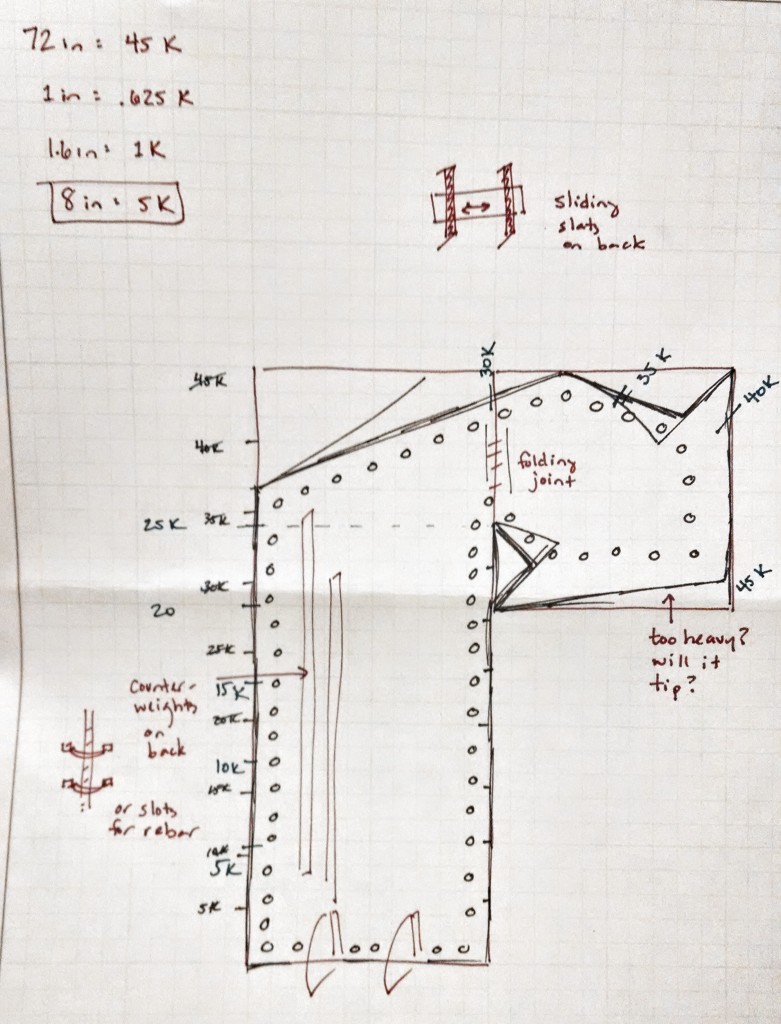 72 in = 45 K
1 in = .625 K
1.6 in = 1K
8 in = 5K
sliding
slats
on back
30K
35K
40K
45K
40K
folding
joint
25K
35K
30K
20
45K
25K
too heavy?
will it
tip?
Counter-
weights
on
back
15K
20K
10K
15K
or slots
for rebar
10K
5K
5K